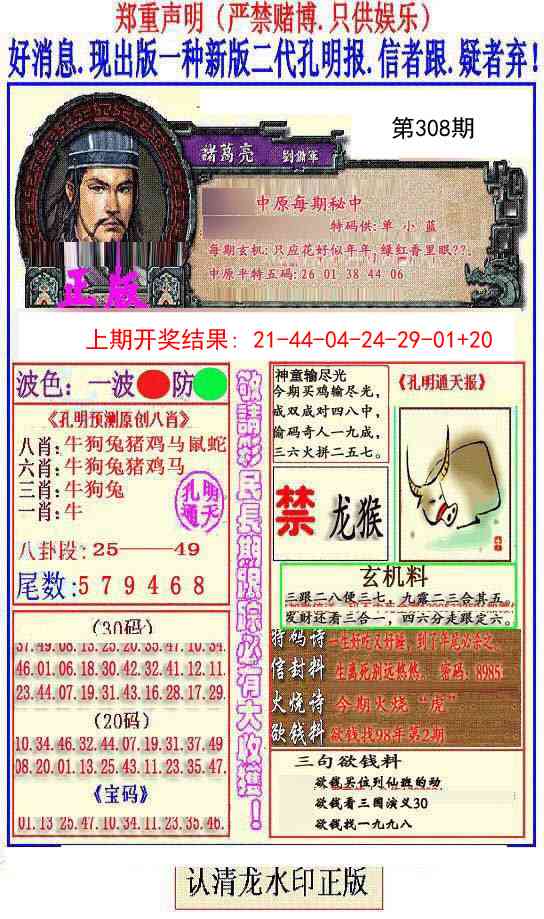 郑重声明（严禁赌博.只供娱乐）
好消息.现出版一种新版二代孔明报.信者跟.疑者弃!
第308期
諸葛亮 劉備軍
中原每期秘中
特码供:单 小 蓝
每期玄机:只应花好似年年,绿红香里眠??.
中原平特五码:26 01 38 44 06
正版
上期开奖结果: 21-44-04-24-29-01+20
波色: 一波 防
《孔明预测原创八肖》
八肖:牛狗兔猪鸡马鼠蛇
六肖:牛狗兔猪鸡马
三肖:牛狗兔
一肖:牛
孔明通天
八卦段:25——49
尾数:579468
(30码)
37.49.08.13.25.20.35.47.10.34
46.01.06.18.30.42.32.41.12.11
23.44.07.19.31.43.16.28.17.29
(20码)
10.34.46.32.44.07.19.31.37.49
08.20.01.13.25.43.11.23.35.47
《宝码》
01.13.25.47.10.34.11.23.35.46.
敬請彩民長期跟踪必有大收獲!
神童输尽光
今期买鸡输尽光,
成双成对四八中,
偷码奇人一九成,
三六火拼二五七。
《孔明通天报》
禁 龙猴
玄机料
三跟二八便三七, 九露二三合其五。
发财还看三合一, 四六分走跟定六。
特码诗 一生好吃又好睡,到了年
信封料 生离死别远悠悠. 密码:8985!
火烧诗 今期火烧“虎”
欲钱料 欲钱找98年第2期
三句欲钱料
欲钱买位列仙班的动
欲钱看三国演义30
欲钱找一九九八
认清龙水印正版